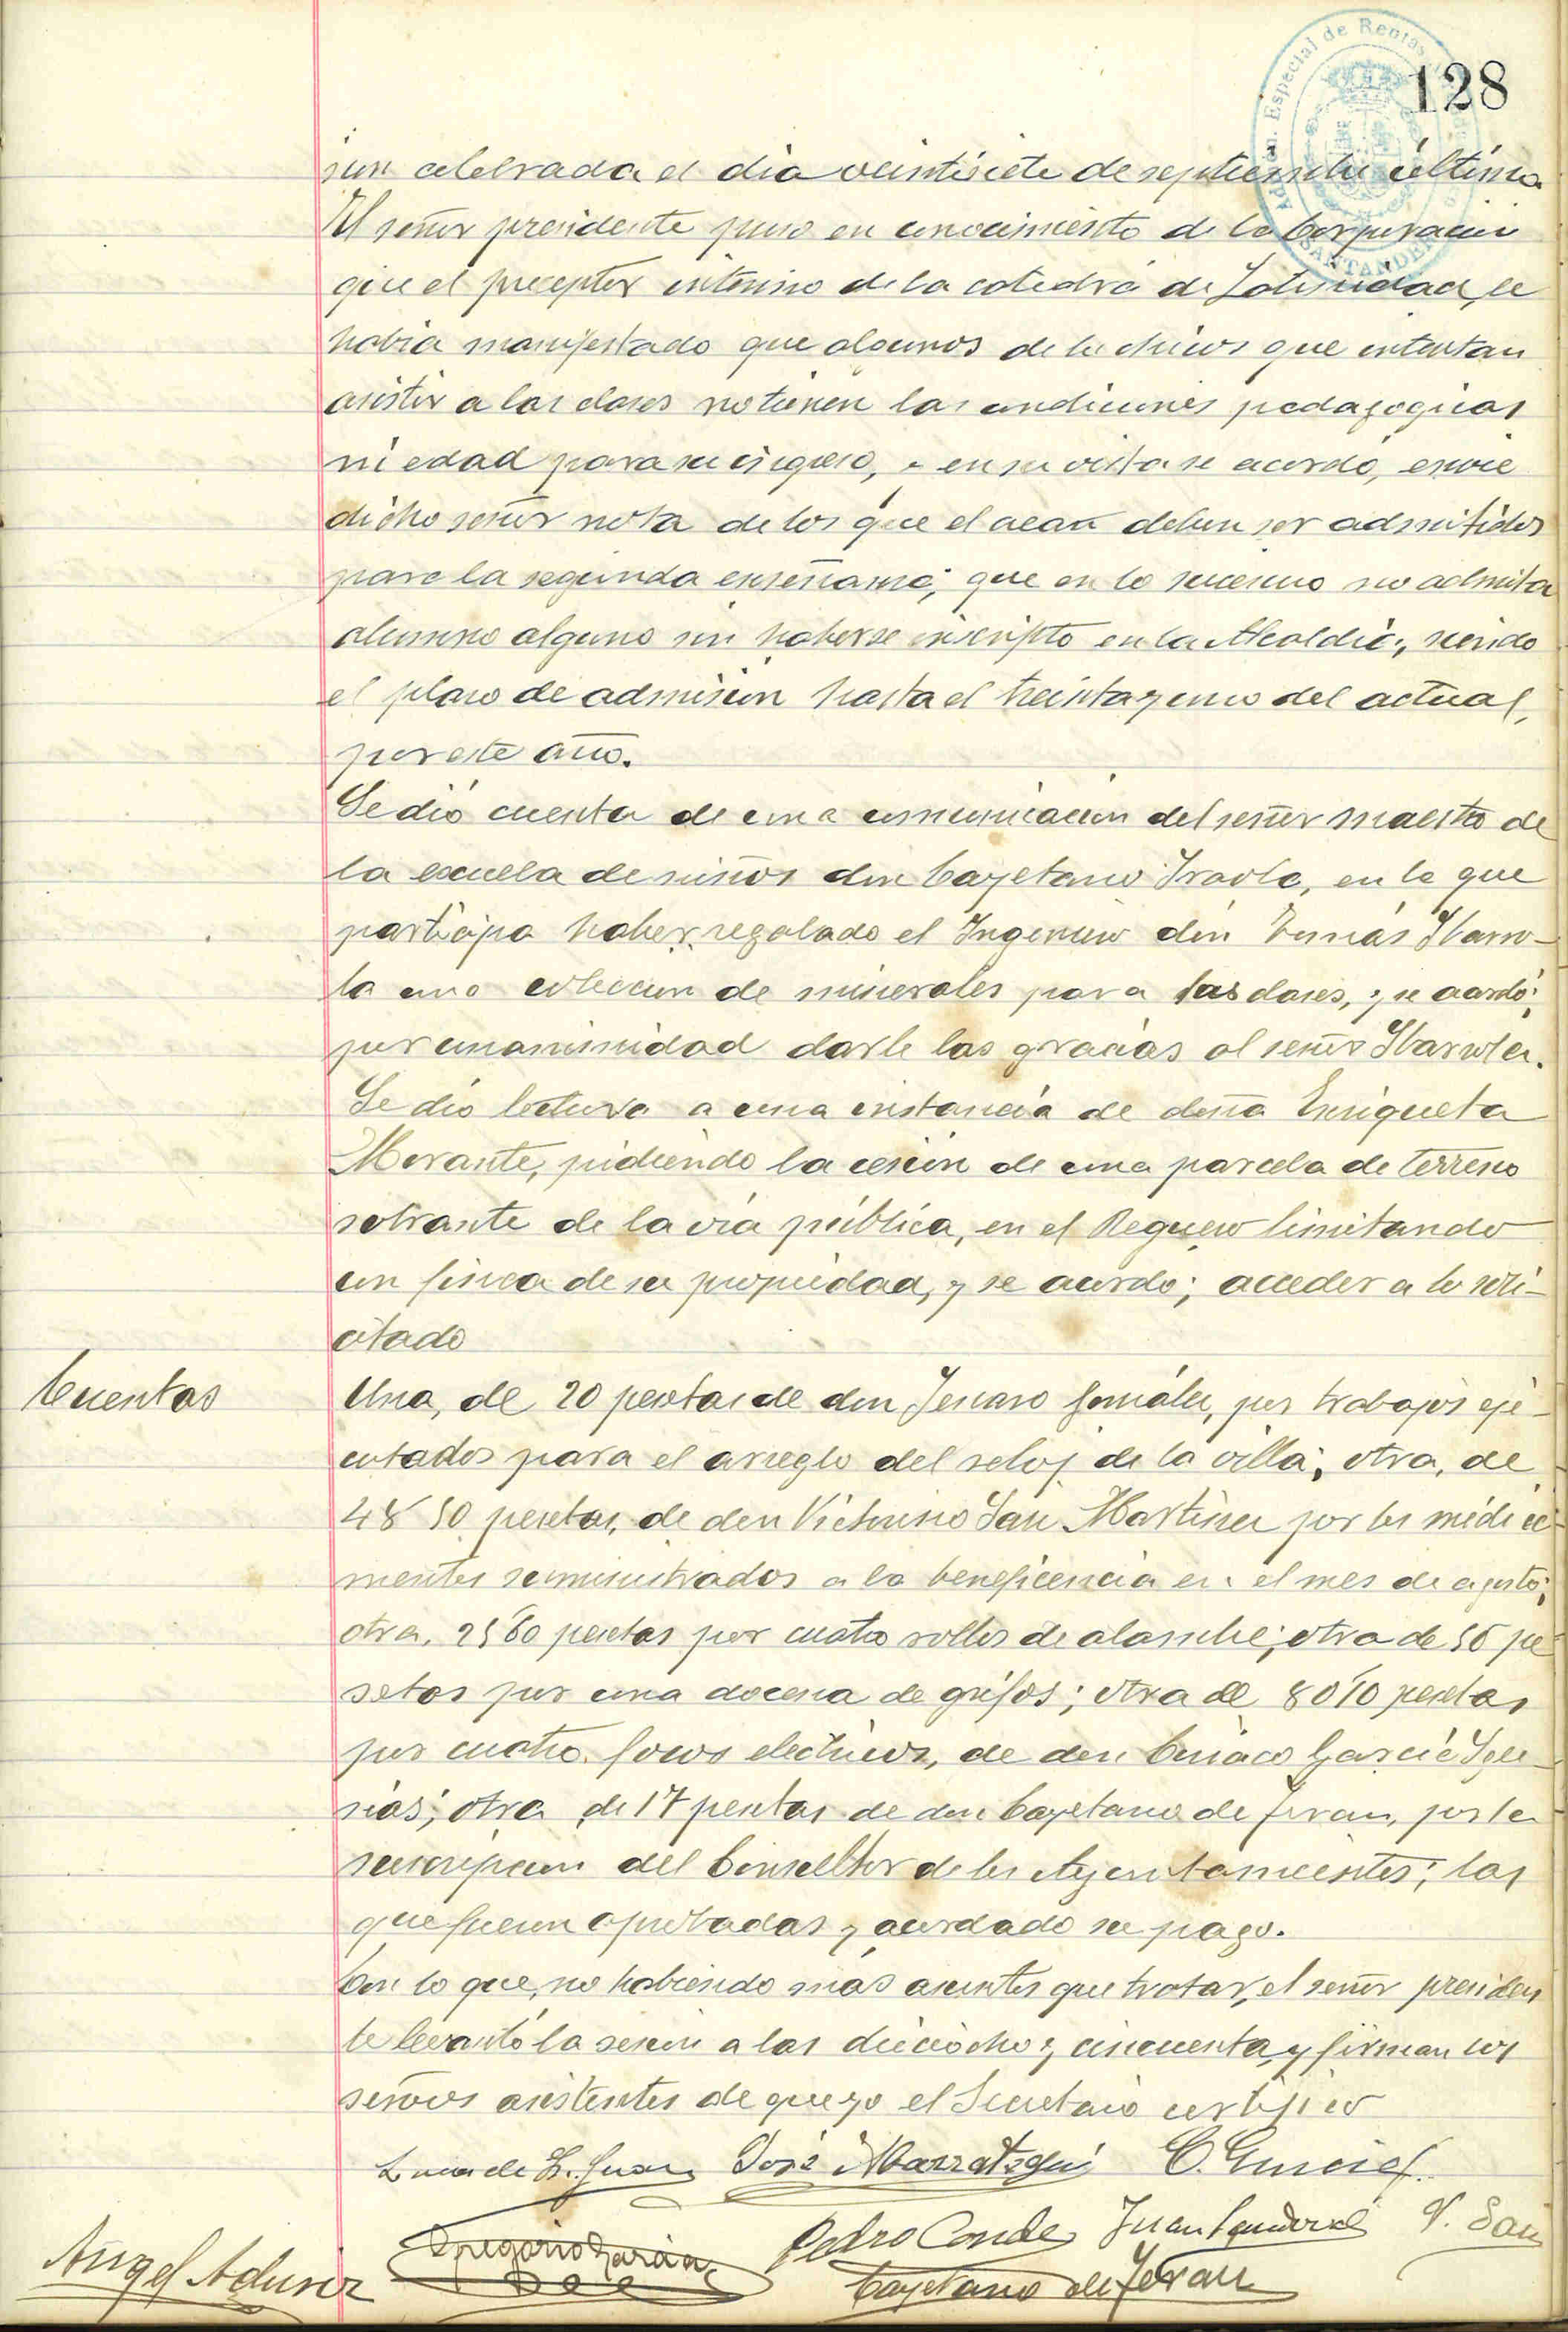 128
Especial de Rentas
SANTANDER
sion celebrada el dia veintisiete de septiembre último
El señor presidente puso en conocimiento de la Corporacion
que el preceptor interino de la catedra de Latinidad, le
habia manifestado que algunos de los chicos que intentan
asistir a las clases no tienen las condiciones pedagogicas
ni edad para su ingreso, y en su vista se acordó, envie
dicho señor nota de los que el deben ser admitidos
para la segunda enseñanza; que en lo sucesivo no admita
alumno alguno sin haberse inscripto en la Alcaldia, siendo
el plazo de admision hasta el treinta y uno del actual,
por este año.
Se dió cuenta de una comunicacion del señor maestro de
la escuela de niños don Cayetano, en la que
participa haber regalado el Ingeniero don Tomás Ibarro-
la una coleccion de minerales para las clases, y se acordó;
por unanimidad darle las gracias al señor Ibarrola.
Se dio lectura a una instancia de doña Enriqueta
Morante, pidiendo la cesion de una parcela de terreno
sobrante de la via pública, en el Reguero limitando
con finca de su propiedad, y se acordo; acceder a lo soli-
citado
Cuentas
Una, de 20 pesetas de don Jenaro González, por trabajos eje-
cutados para el arreglo del reloj de la villa; otra, de
48 50 pesetas, de don Victorino San Martinez por los medica-
mentos suministrados a la beneficencia en el mes de agosto;
otra, 25 60 pesetas por cuatro rollos de alambre; otra de 56 pe
setas por una docena de grifos; otra de 80 10 pesetas
por cuatro focos electricos, de don Ciriaco Garcia Igle-
sias; otra de 17 pesetas de don Cayetano de Jeran, por la
suscripcion del Consultor de los Ayuntamientos; las
que fueron aprobadas y acordado su pago.
Con lo que, no habiendo mas asuntos que tratar, el señor presiden
te levantó la sesion a las dieciocho y cincuenta, y firman los
señores asistentes de que yo el Secretario certifico
José Marrategui
Pedro Conde Juan Sandoval V. San
Angel
Gregorio Garcia
Cayetano de Jeran